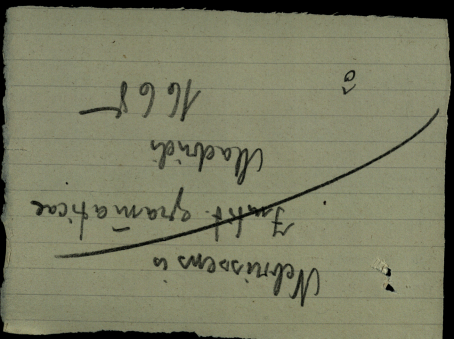 Nebrissensis
Instit. gram̄aticae
Madridi
1668
ô